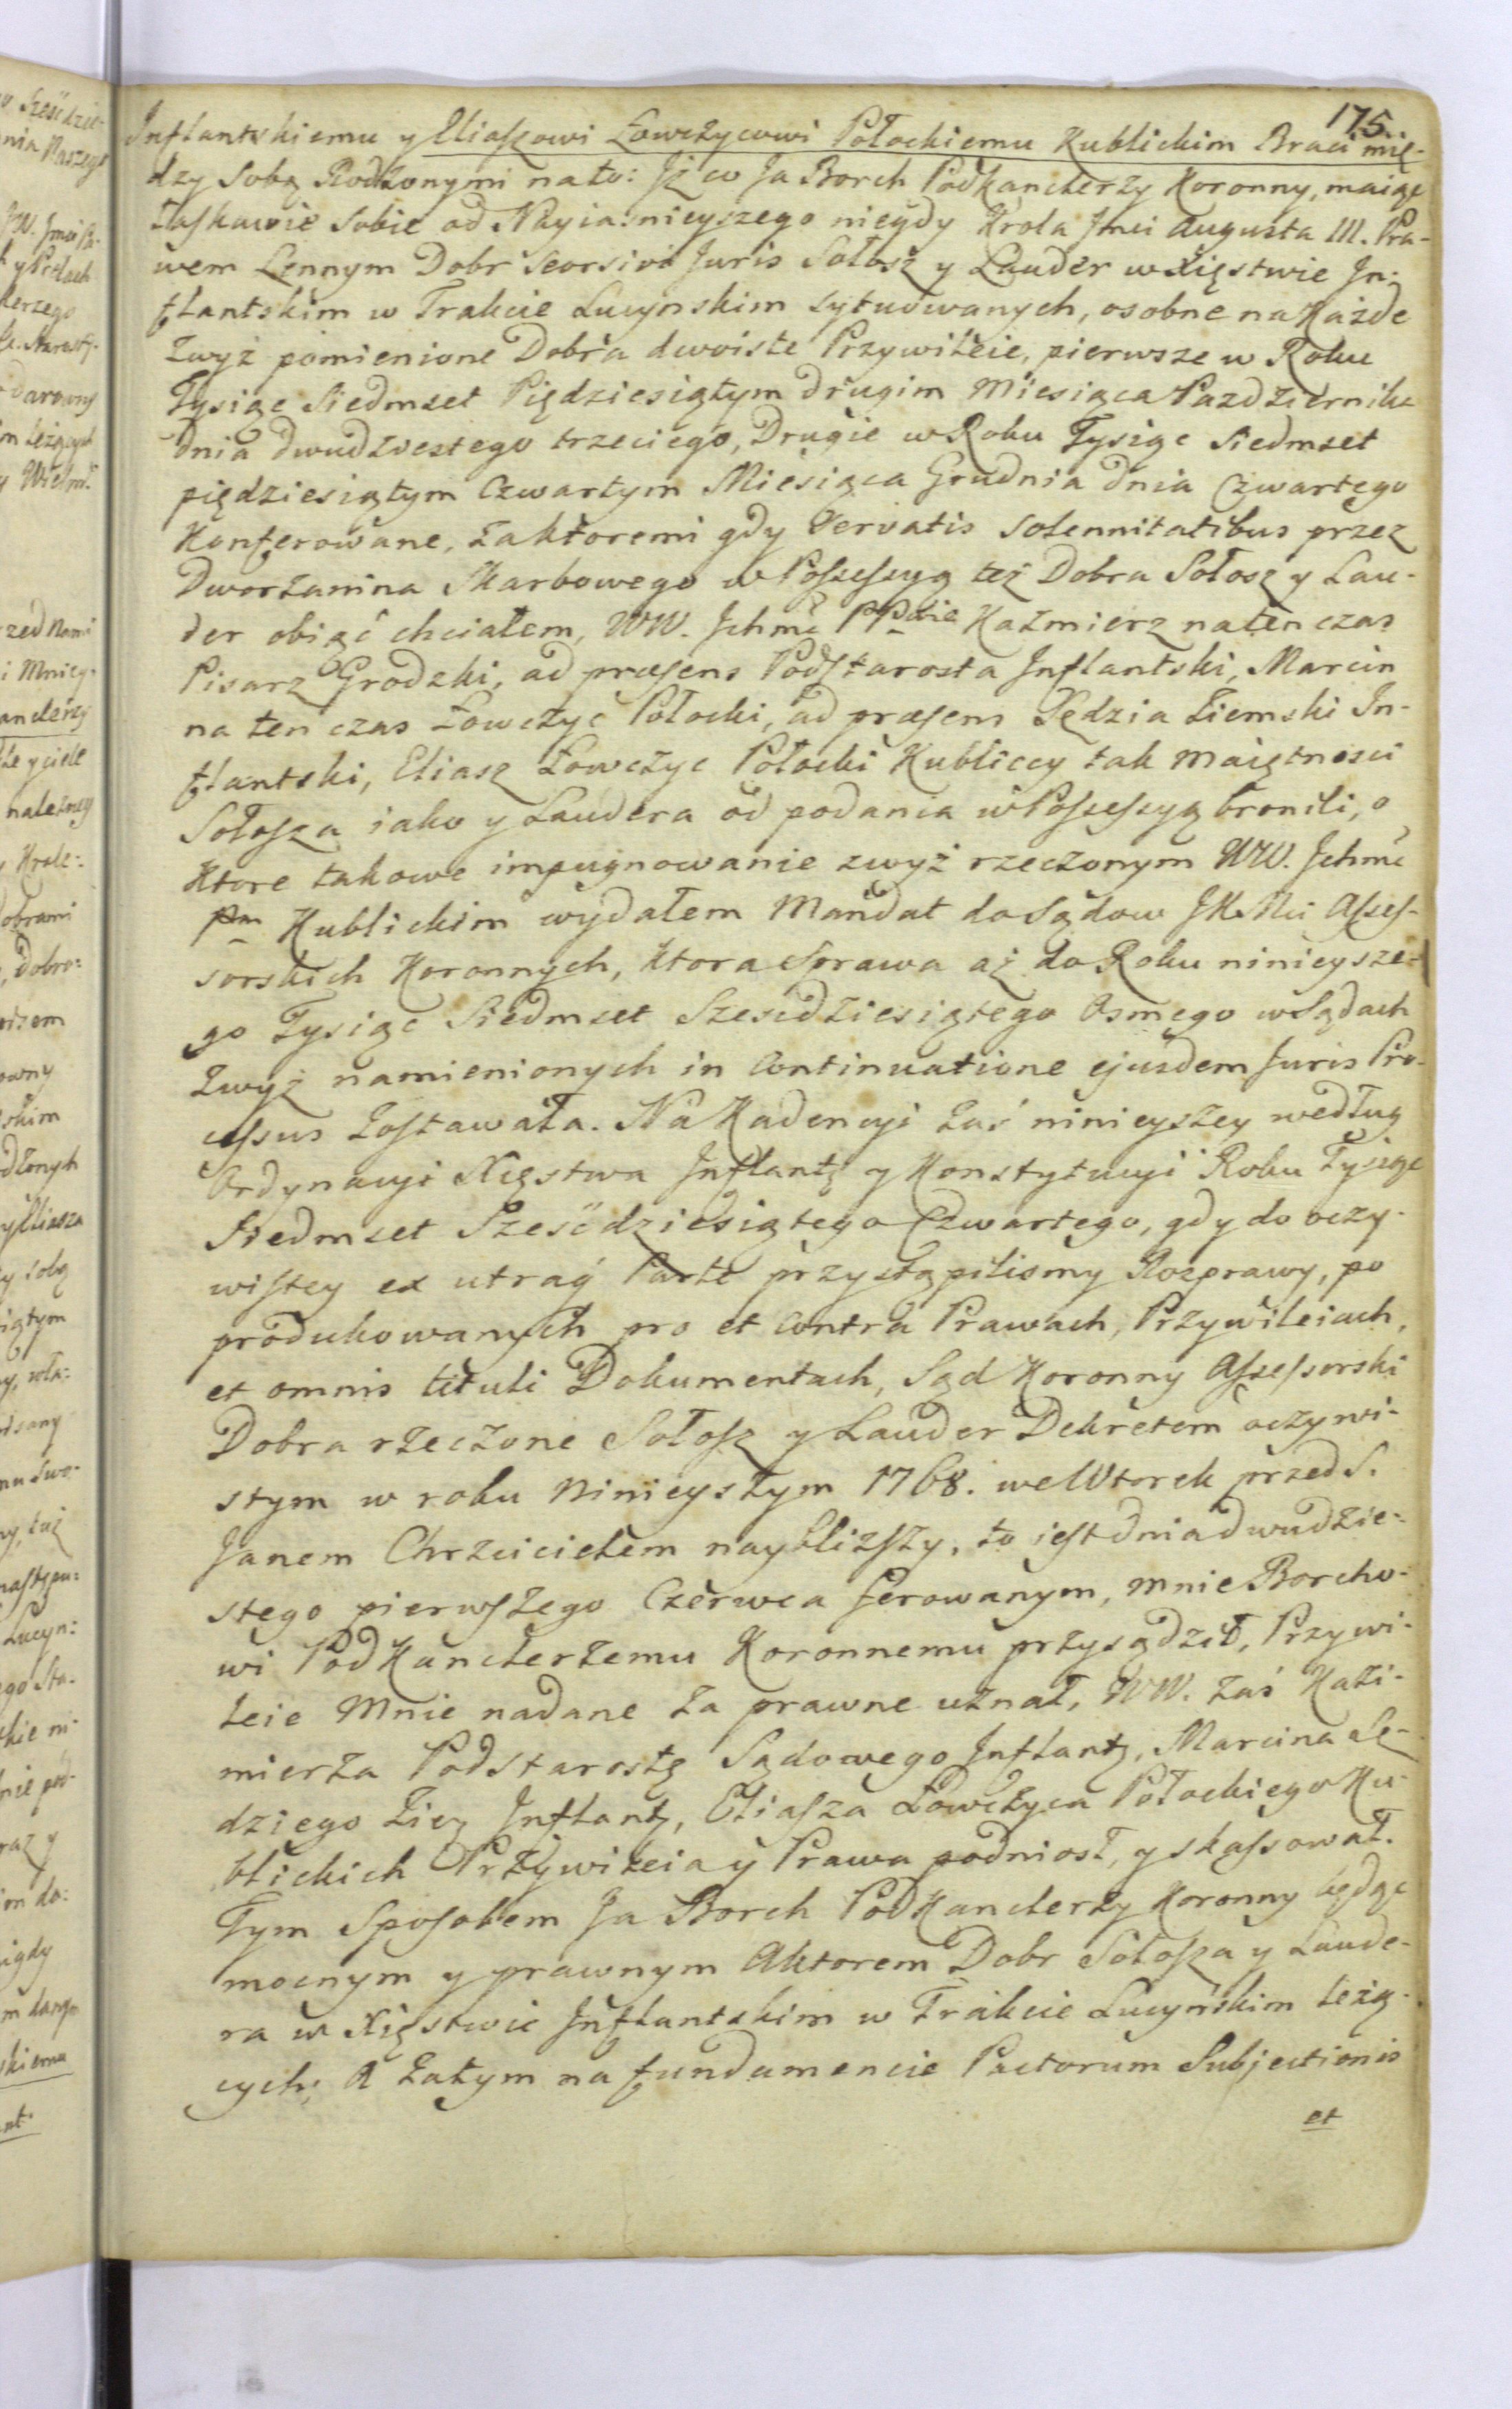 175.
Inflantskiemu y Eliaszowi Łowczycowi Połockiemu Kublickim Braci mię-
dzy Sobą Rodzonymi na to: Jż co Ja Borch Podkanclerzy Koronny, maiąc
łaskawie Sobie od Nayiasnieyszego niegdy Krola Jmci Augusta III. Pra-
wem Lennym Dobr Seorsivi Juris Sołosz y Lauder w Xięstwie In-
flantskim w Trakcie Lucynskim sytuowanych, osobne na Każde
zwyż pomienione Dobra dwoiste Przywileie, pierwsze w Roku
Tysiąc Siedmset Piędziesiątym drugim Miesiąca Pazdziernika
dnia dwudziestego trzeciego, Drugie w Roku Tysiąc Siedmset
piędziesiątym Czwartym Miesiąca Grudnia dnia Czwartego
Konferowane, za ktoremi gdy Servatis Solennitatibus przez
Dworzanina Skarbowego w Possessyą też Dobra Sołosz y Lau-
der obiąć chciałem, WW. Jchmć PPwie Kaźmierz na ten czas
Pisarz Grodzki, ad præsens Podstarosta Inflantski, Marcin
na ten czas Łowczyc Połocki, ad præsens Sędzia Ziemski In-
flantski, Eliasz Łowczyc Połocki Kubliccy tak maiętnosci
Sołosza iako y Laudera od podania w Possessyą bronili, o
Ktore takowe impugnowanie zwyż rzeczonym WW. Jchmć
Pm Kublickim wydałem Mandat do Sądow JKMci Asses-
sorskich Koronnych, Ktora Sprawa aż do Roku ninieysze-
go Tysiąc Siedmset Szescdziesiątego Osmego w Sądach
zwyż namienionych in Continuatione ejusdem Juris Pro-
cessus zostawała. Na Kadencyi zaś ninieyszey według
Ordynacyi Xięstwa Inflantg y Konstytucyi Roku Tysiąc
Siedmset Sześćdziesiątego Czwartego, gdy do oczy-
wistey ex utraq Parte przystąpilismy Rozprawy, po
produkowanych pro et Contra Prawach, Przywileiach,
et omnis tituli Dokumentach, Sąd Koronny Assessorski
Dobra rzeczone Sołosz y Lauder Dekretem oczywi-
stym w roku Ninieyszym 1768. we Wtorek przed S.
Janem Chrzcicielem nayblizszy, to iest dnia dwudzie-
stego pierwszego Czerwca ferowanym, mnie Borcho-
wi Podkanclerzemu Koronnemu przysądził, Przywi-
leie Mnie nadane za prawne uznał, WW. zaś Kazi-
mierza Podstarostę Sądowego Inflantg, Marcina Sę-
dziego Zieg Inflantg, Eliasza Łowczyca Połockiego Ku-
blickich Przywileia y Prawa podniosł, y skassował.
Tym Sposobem Ja Borch Podkanclerzy Koronny będąc
mocnym y prawnym Aktorem Dobr Sołosza y Laude-
ra w Xięstwie Inflantskim w Trakcie Lucynskim leżą-
cych; A zatym na fundamencie Pactorum Subjectionis
et